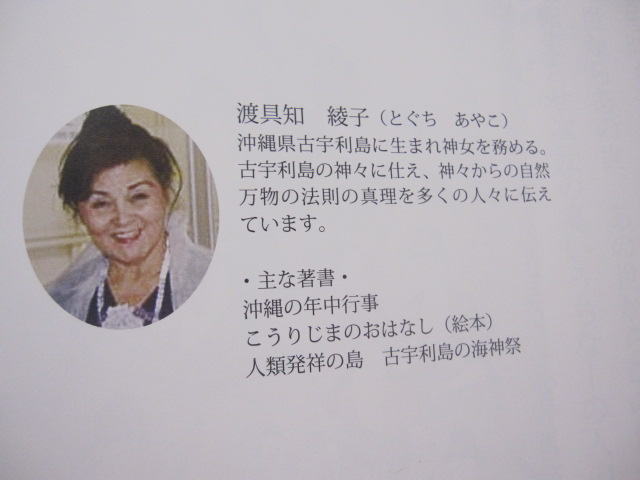 渡具知　綾子（とぐち　あやこ）
沖縄県古宇利島に生まれ神女を務める。
古宇利島の神々に仕え、神々からの自然
万物の法則の真理を多くの人々に伝え
ています。
・主な著書・
沖縄の年中行事
こうりじまのおはなし（絵本）
人類発祥の島　古宇利島の海神祭